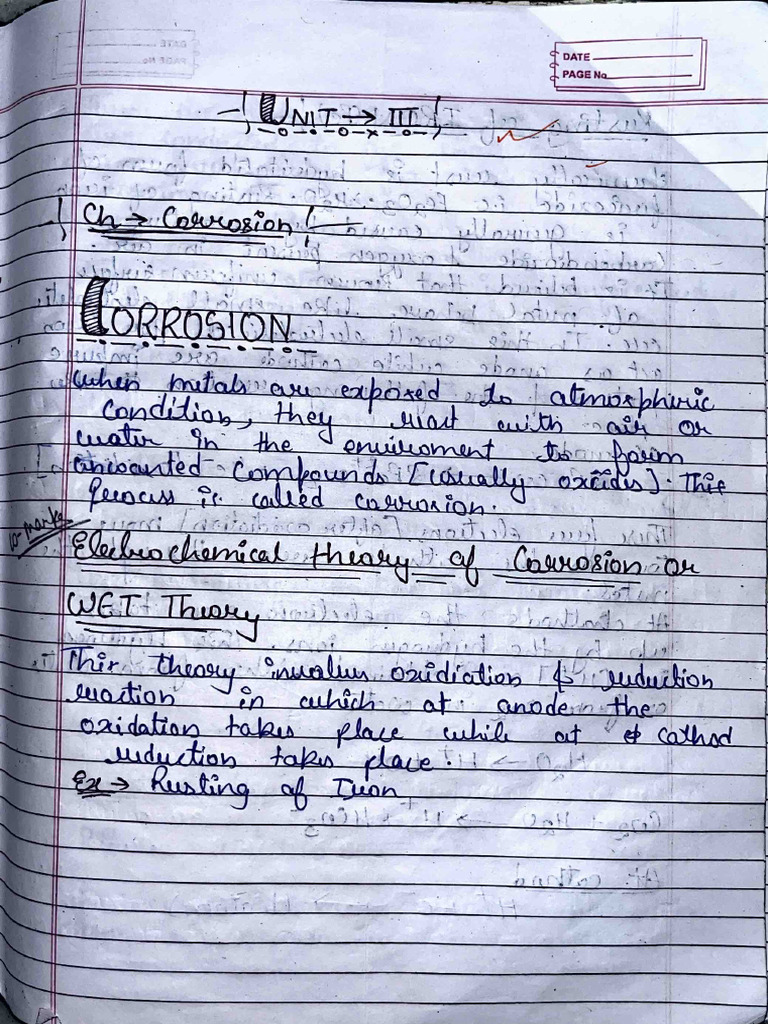 DATE
PAGE No
UNIT → III
Ch → Corrosion
CORROSION
When metals are exposed to atmospheric
condition, they react with air or
water in the enviroment to form
unwanted compounds [usually oxides]. This
process is called corrosion.
10 marks
Electrochemical theory of Corrosion or
WET Theory
This theory involves oxidiation & reduction
reaction in which at anode the
oxidation takes place while at cathod
reduction takes place.
Ex → Rusting of Iron